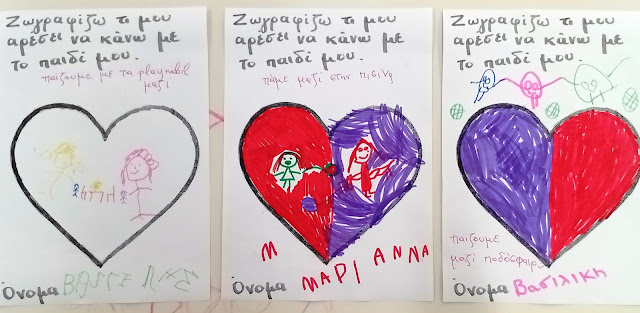 Ζωγραφίζω τι μου
αρέσει να κάνω με
το παιδί μου.
παίζουμε με τα playmobil
μαζί
Όνομα
Ζωγραφίζω τι μου
αρέσει να κάνω με
το παιδί μου.
πάμε μαζί στην πισίνα
Μ
ΜΑΡΙΑΝΝΑ
Όνομα
Ζωγραφίζω τι μου
αρέσει να κάνω με
το παιδί μου.
παιζουμε
μαζί ποδόσφαιρο
Όνομα Βασιλικη